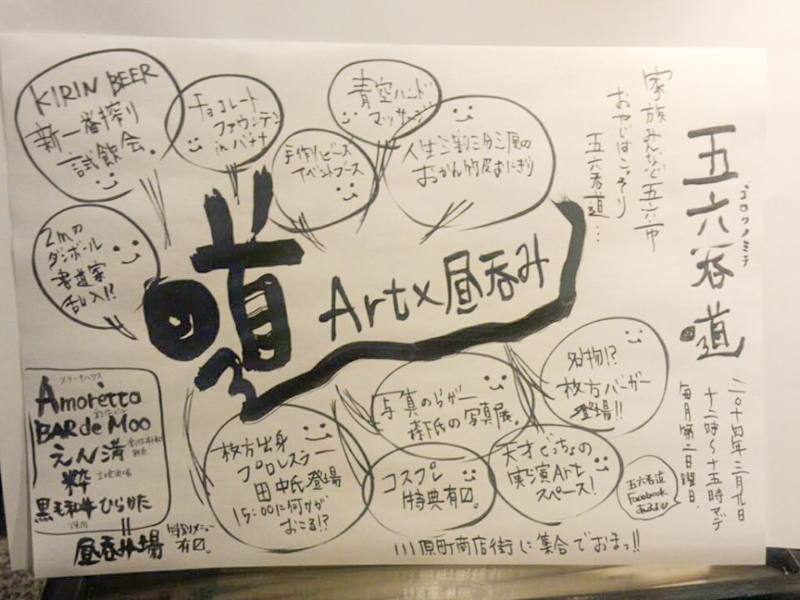 五六呑道
ゴロクノミチ
家族みんなで五六市
おやじはこっそり
五六呑道…
二〇一四年三月九日
十二時〜十五時マデ
毎月第二日曜日
KIRIN BEER
新一番搾り
試飲会。
チョコレート
ファウンテン
in バナナ
青空ハンド
マッサージ
手作りビーズ
イベントブース
おかん竹皮おにぎり
2mの
ダンボール
書道家
乱入!?
道
Art×昼呑み
名物!?
枚方バーガー
登場!!
写真のらがー
森氏の写真展。
枚方出身
プロレスラー
田中氏登場
15:00に何かが
おこる!?
コスプレ
特典有り。
天才ぐっちょの
実演Art
スペース!
五六呑道
Facebook
あるよ
ステーキハウス
Amoretto
BAR de Moo
えん満
粋
立呑酒場
黒毛和牛ひらかた
焼肉
昼呑み場
特別メニュー
有り。
川原町商店街に集合でおまっ!!